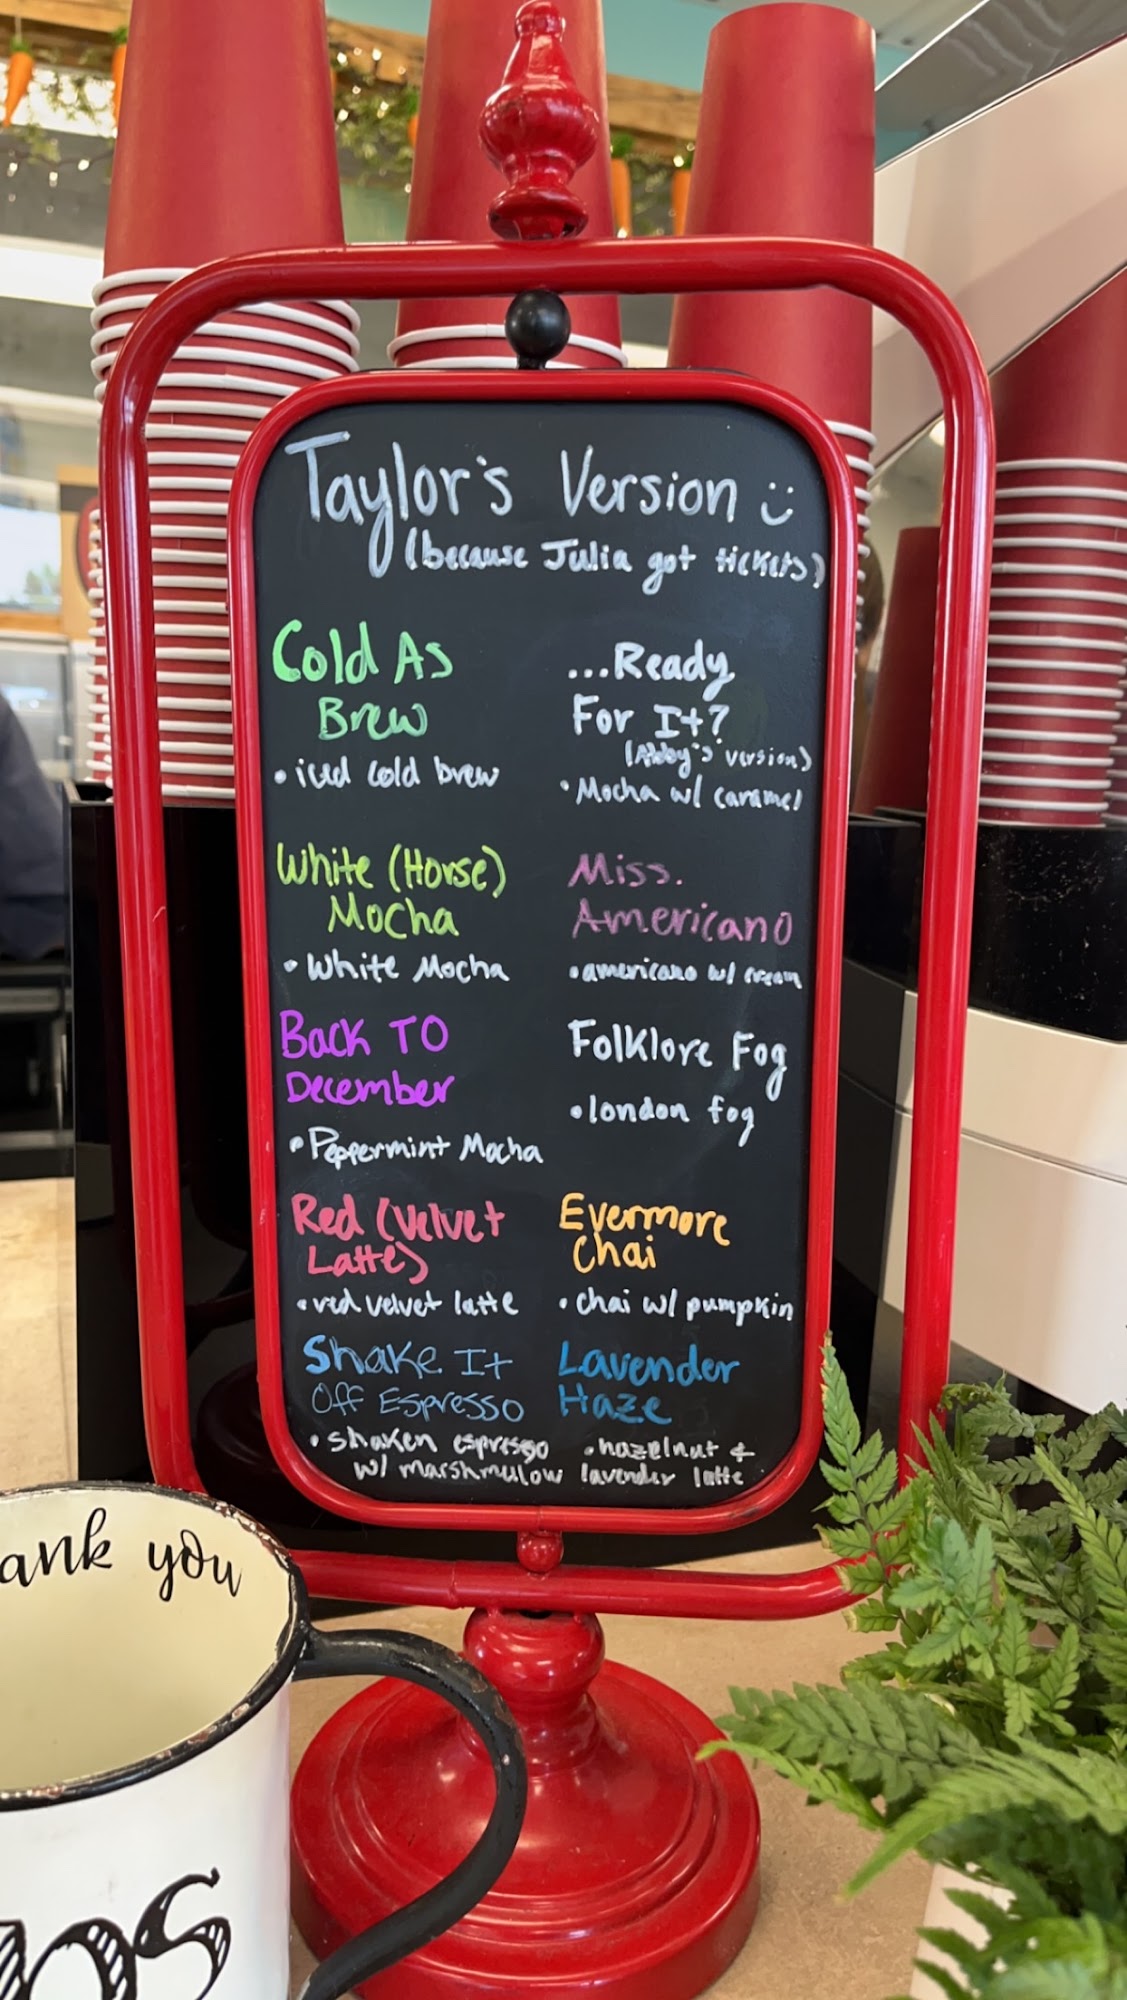 Taylor's Version
(because Julia got tickets)
Cold As
Brew
• iced cold brew
White (Horse)
Mocha
• White Mocha
Back TO
December
• Peppermint Mocha
Red (Velvet
Latte)
• red velvet latte
Shake It
Off Espresso
• shaken espresso
w/ marshmellow
...Ready
For It?
(Abby's version)
• Mocha w/ caramel
Miss.
Americano
• americano w/ cream
Folklore Fog
• london fog
Evermore
Chai
• chai w/ pumpkin
Lavender
Haze
• hazelnut &
lavender latte
ank you